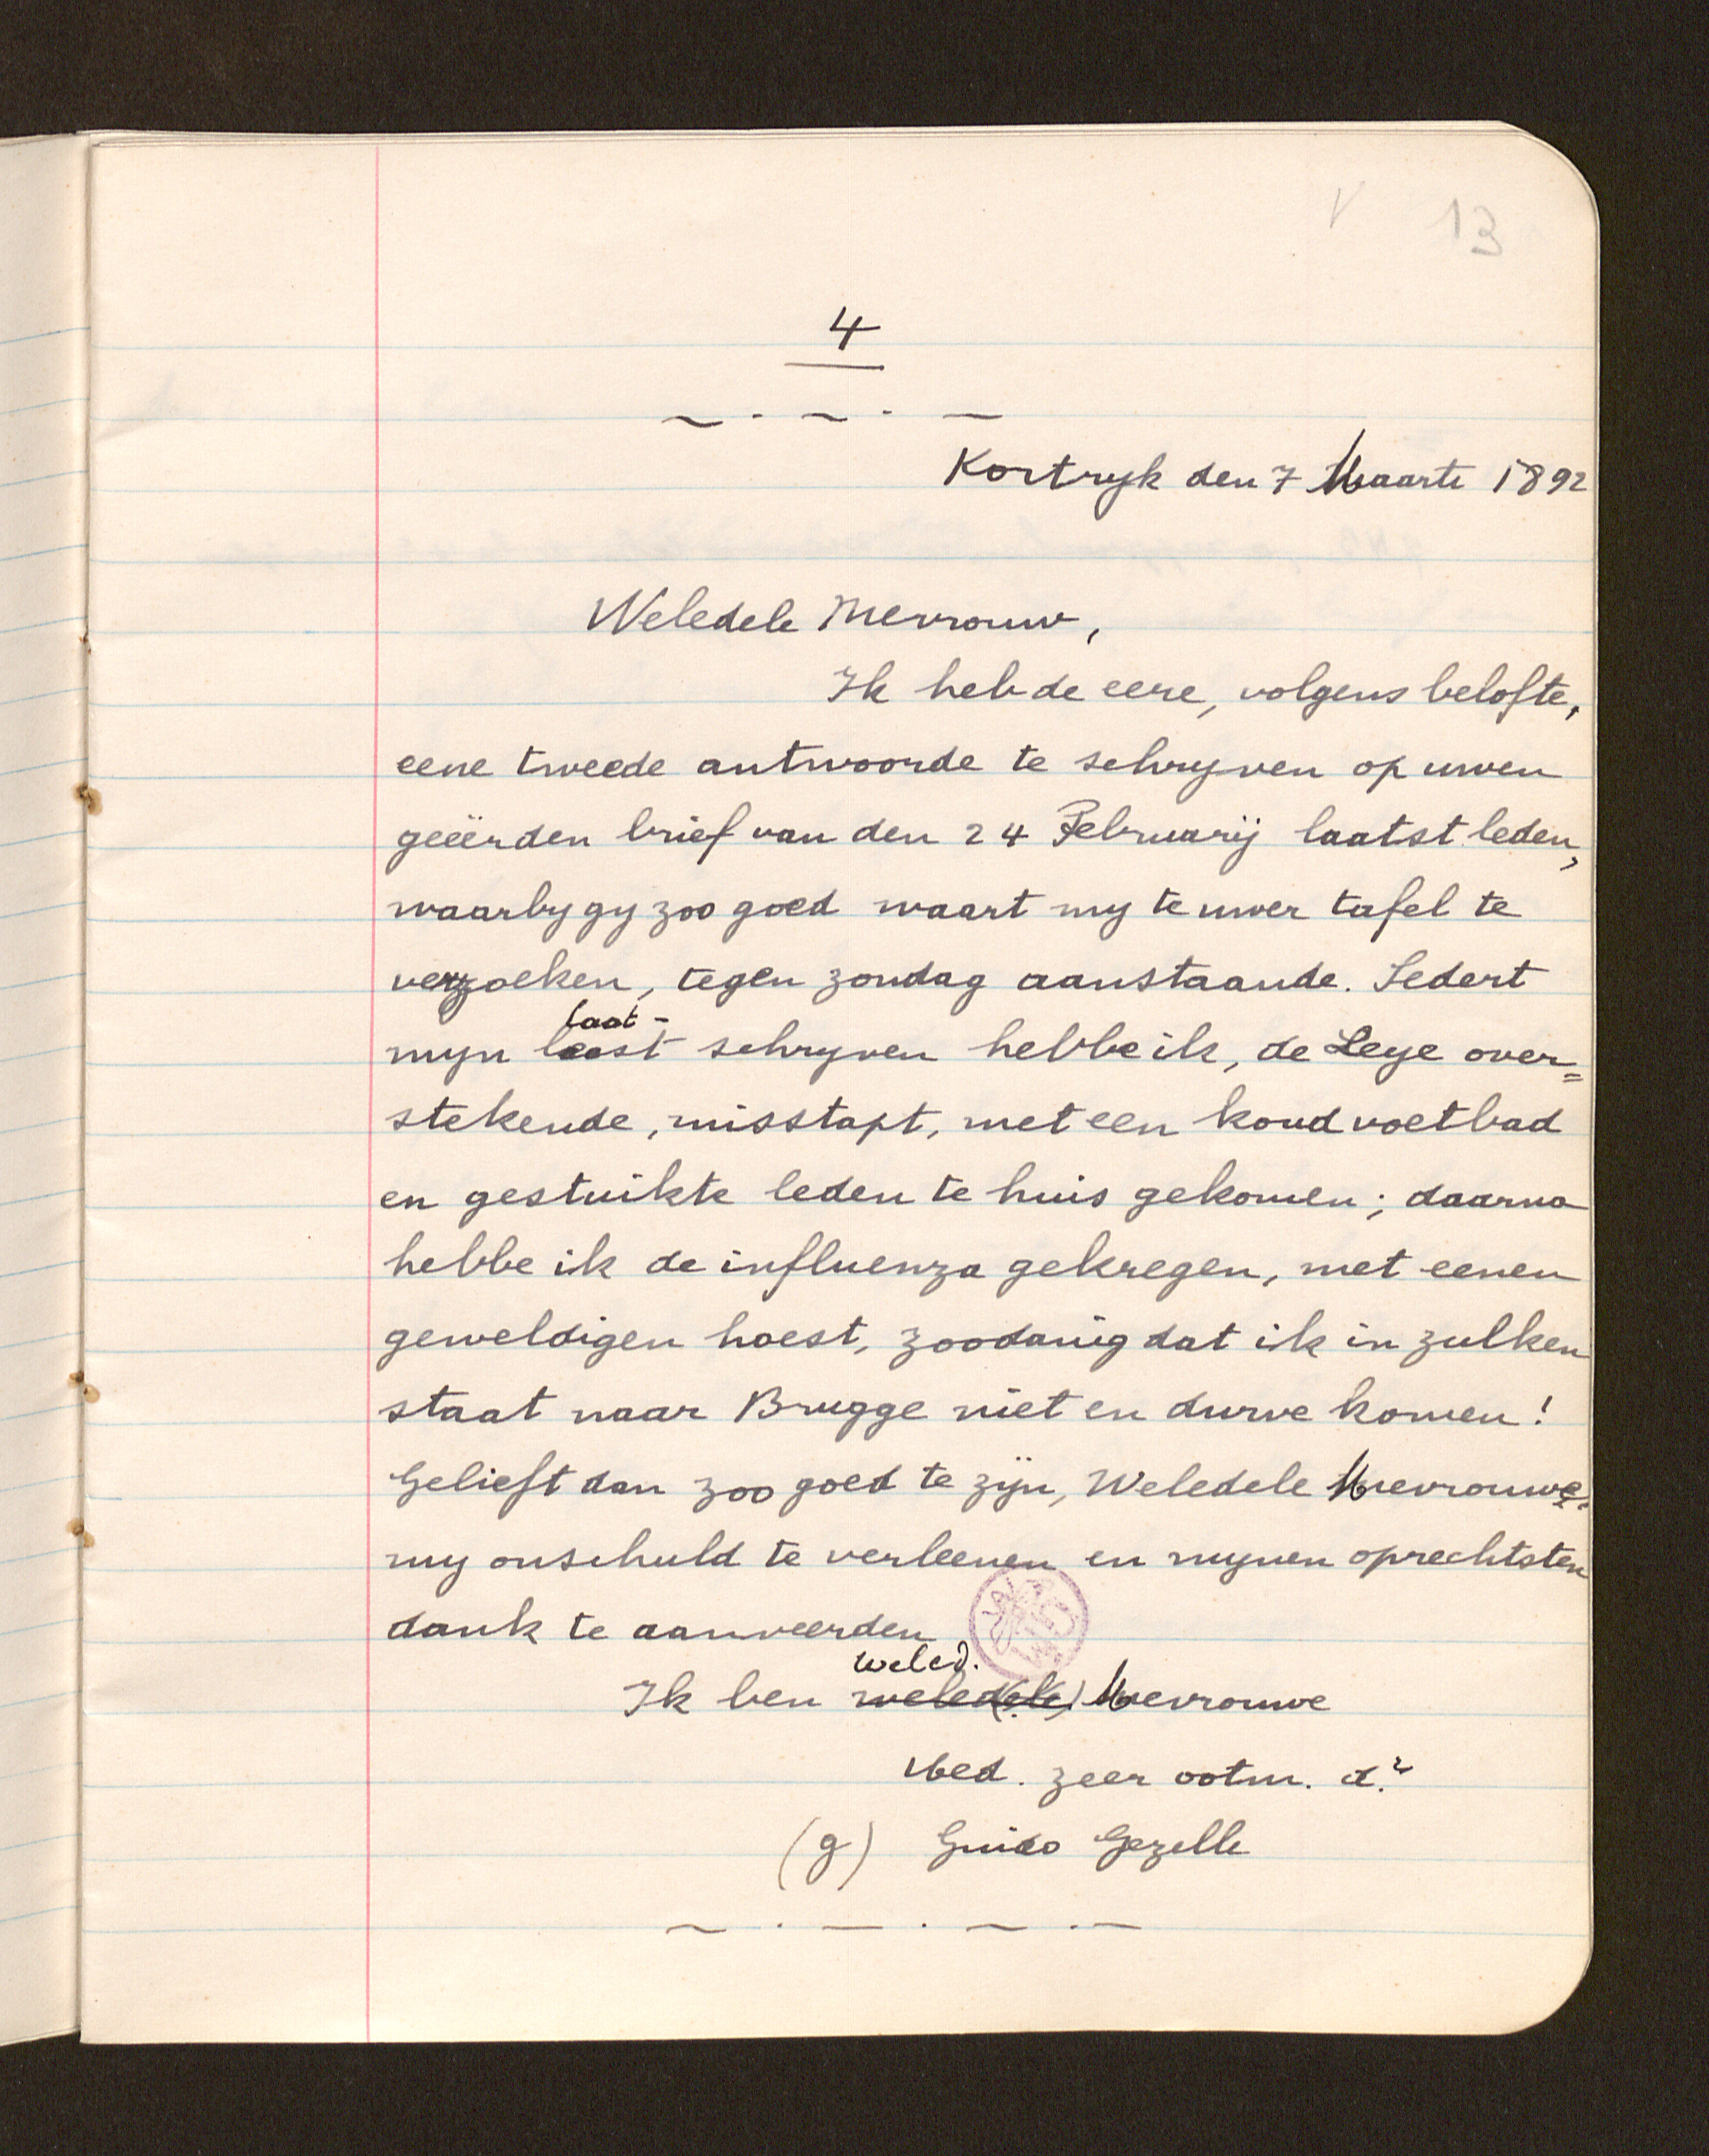 V 13
4
Kortryk den 7 Maarte 1892
Weledele Mevrouw,
Ik heb de eere, volgens belofte,
eene tweede antwoorde te schryven op uwen
geëerden brief van den 24 Februarij laatst leden,
waarby gy zoo goed waart my te uwer tafel te
verzoeken, tegen zondag aanstaande. Sedert
laat-
myn laast schryven hebbe ik, de Leye over=
stekende, misstapt, met een koud voetbad
en gestuikte leden te huis gekomen; daarna
hebbe ik de influenza gekregen, met eenen
geweldigen hoest, zoodanig dat ik in zulken
staat naar Brugge niet en durve komen!
Gelieft dan zoo goed te zijn, Weledele Mevrouwe,
my onschuld te verleenen en mynen oprechtsten
dank te aanveerden
weled.
Ik ben weled(ele) Mevrouwe
Ued. zeer ootm. dr
(g) Guido Gezelle